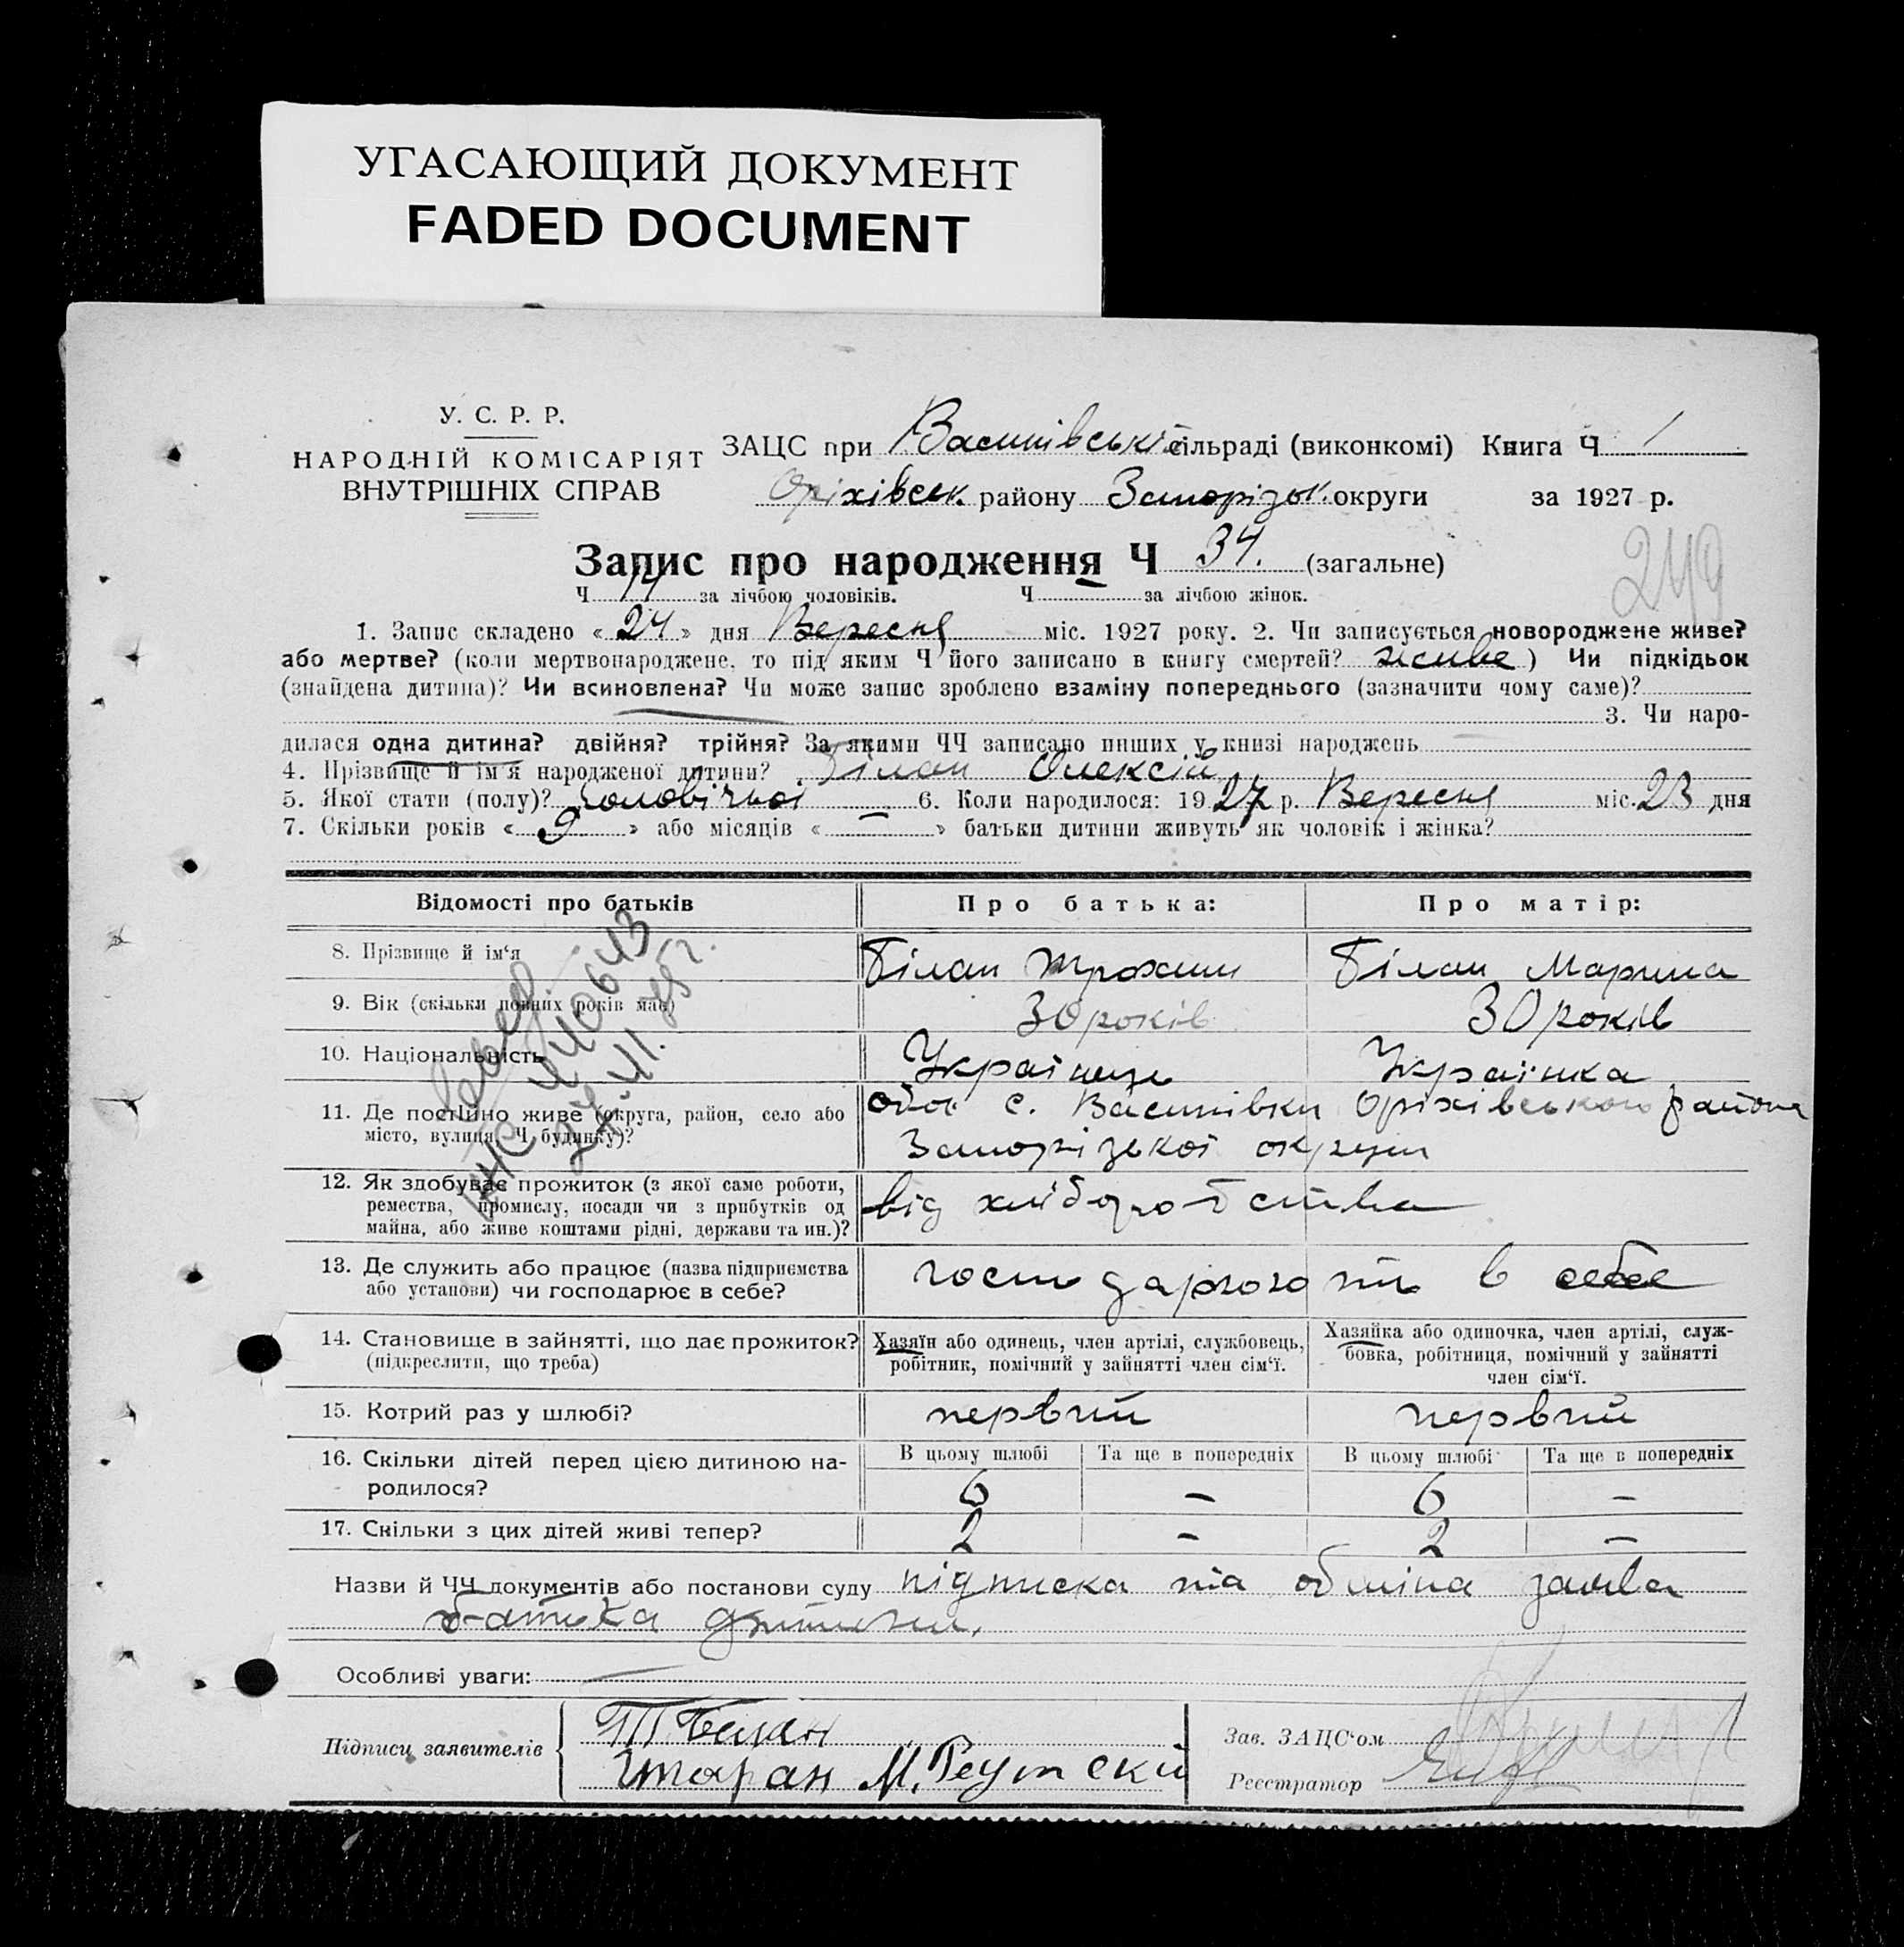 УГАСАЮЩИЙ ДОКУМЕНТ
FADED DOCUMENT
У. С. Р. Р.
НАРОДНІЙ КОМІСАРІЯТ
ВНУТРІШНІХ СПРАВ
ЗАЦС при Васинівській сільраді (виконкомі) Книга Ч 1
Оріхівськ. району Запорізьк. округи за 1927 р.
249
Запис про народження Ч 34. (загальне)
Ч 14 за лічбою чоловіків. Ч — за лічбою жінок.
1. Запис складено « 24 » дня Вересня міс. 1927 року. 2. Чи записується новороджене живе?
або мертве? (коли мертвонароджене, то під яким Ч його записано в книгу смертей? живе ) Чи підкідьок
(знайдена дитина)? Чи всиновлена? Чи може запис зроблено взаміну попереднього (зазначити чому саме)?
— 3. Чи наро-
дилася одна дитина? двійня? трійня? За якими ЧЧ записано инших у книзі народжень —
4. Прізвище й ім'я народженої дитини? Білан Олексій
5. Якої стати (полу)? Чоловічьої 6. Коли народилося: 1927 р. Вересня міс. 23 дня
7. Скільки років « 9 » або місяців « — » батьки дитини живуть як чоловік і жінка?
Відомості про батьків Про батька: Про матір:
8. Прізвище й ім'я Білан Трохим Білан Марина
9. Вік (скільки повних років має) 30 років 30 років
10. Національність Українець Українка
11. Де постійно живе (округа, район, село або с. Васинівки Оріхівського района
місто, вулиця, Ч будинку)? Запорізької округи
12. Як здобуває прожиток (з якої саме роботи,
ремества, промислу, посади чи з прибутків од від хліборобства
майна, або живе коштами рідні, держави та ин.)?
13. Де служить або працює (назва підприємства
або установи) чи господарює в себе? в себе
14. Становище в зайнятті, що дає прожиток? Хазяїн або одинець, член артілі, службовець, Хазяйка або одиночка, член артілі, служ-
(підкреслити, що треба) робітник, помічний у зайнятті член сім'ї. бовка, робітниця, помічний у зайнятті
член сім'ї.
15. Котрий раз у шлюбі? первий первий
16. Скільки дітей перед цією дитиною на- В цьому шлюбі Та ще в попередніх В цьому шлюбі Та ще в попередніх
родилося? 6 — 6 —
17. Скільки з цих дітей живі тепер? 2 — 2 —
Назви й ЧЧ документів або постанови суду підписка та заява
батька дитини.
Особливі уваги: —
Підписи заявителів Т Білан Зав. ЗАЦС'ом
М. Реутский Реєстратор